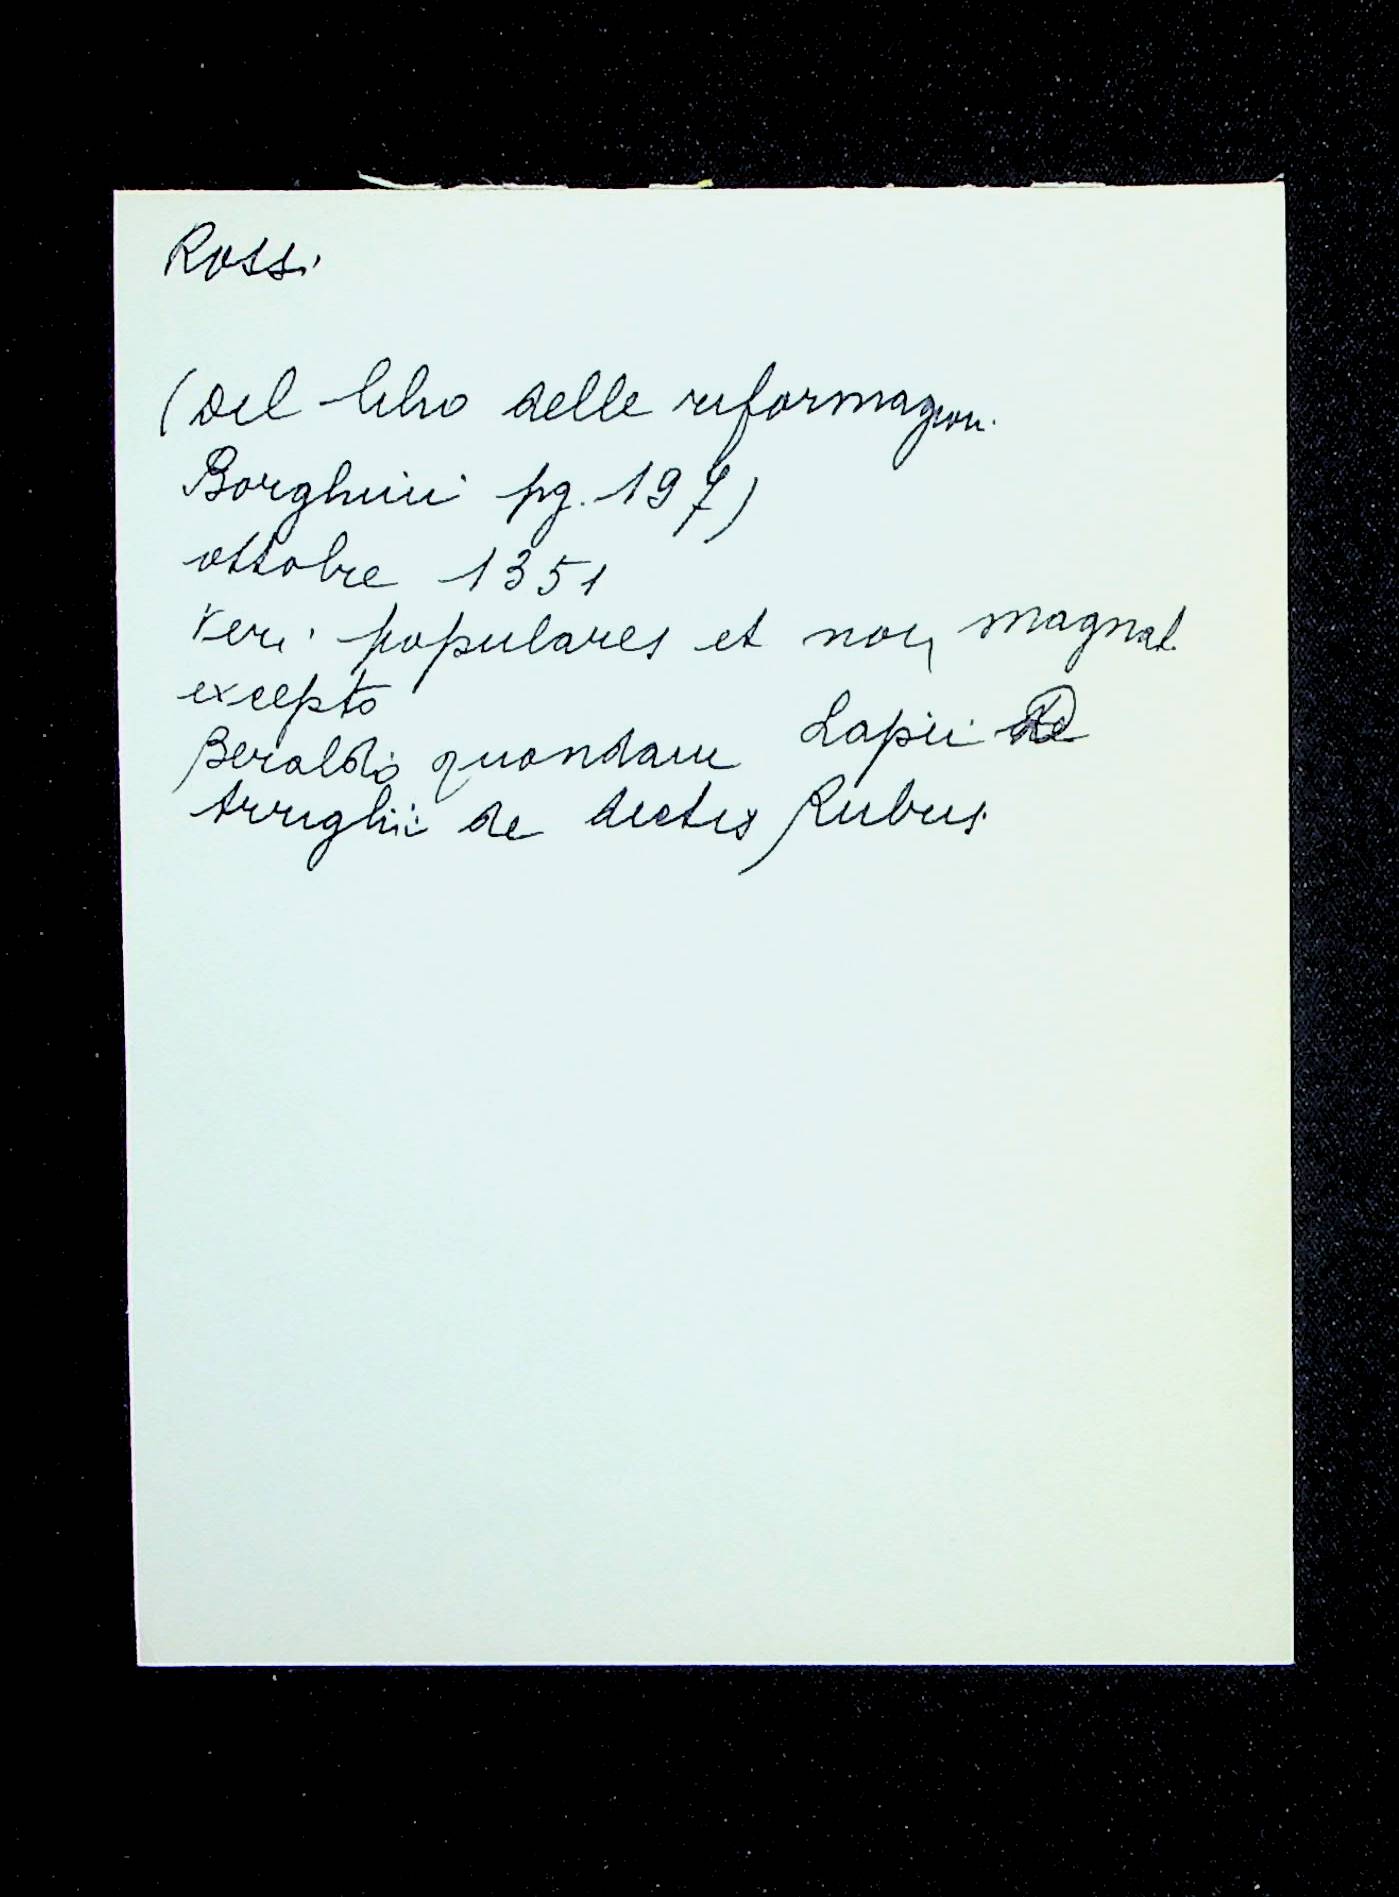 Rossi
(Del libro delle riformagion.
Borghini pg. 197)
ottobre 1351
Veri populares et non magnat.
excepto
Beraldo quondam Lapii de
Arrighii de dictis Rubeis